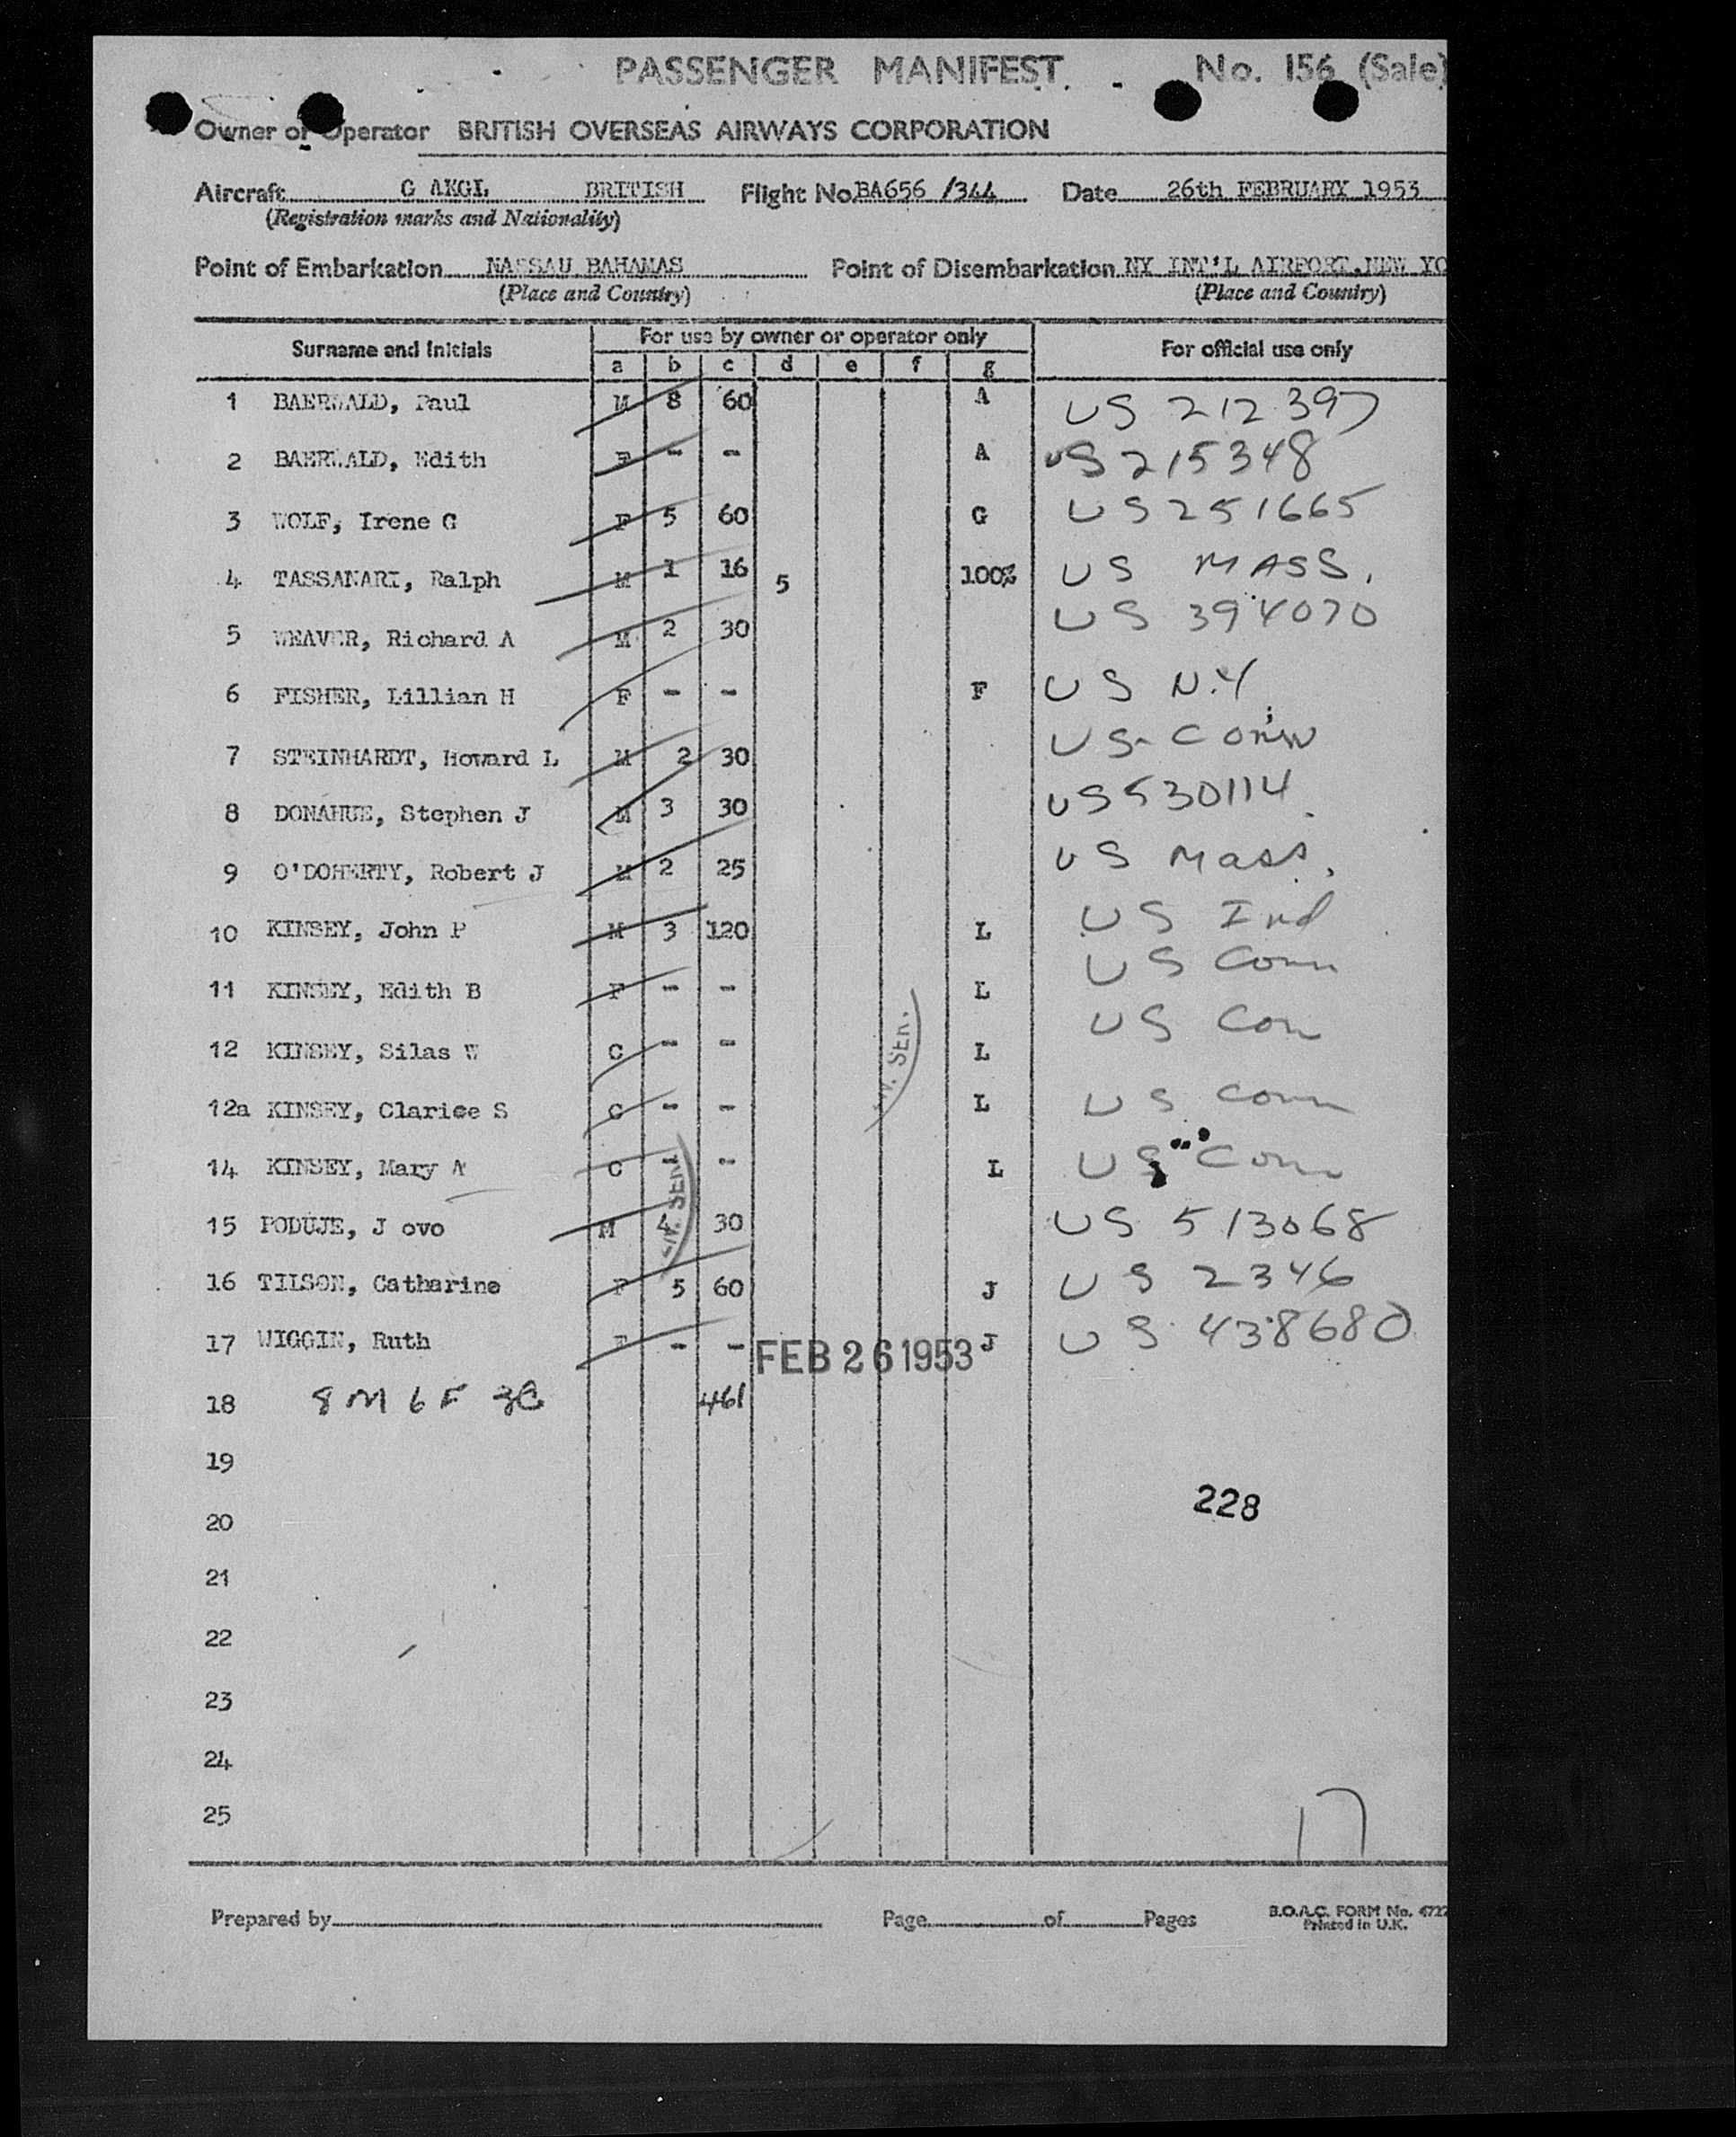 PASSENGER MANIFEST. No. 156 (Sale)
Owner or Operator BRITISH OVERSEAS AIRWAYS CORPORATION
Aircraft G AKGL BRITISH Flight No. BA656 /344 Date 26th FEBRUARY 1953
(Registration marks and Nationality)
Point of Embarkation NASSAU BAHAMAS Point of Disembarkation NY INT'L AIRPORT, NEW YO
(Place and Country) (Place and Country)
Surname and Initials For use by owner or operator only For official use only
a b c d e f g
1 BAERWALD, Paul M 8 60 A US 212397
2 BAERWALD, Edith F - - A US 215348
3 WOLF, Irene G F 5 60 G US 251665
4 TASSANARI, Ralph M 1 16 5 100% US MASS.
5 WEAVER, Richard A M 2 30 US 394070
6 FISHER, Lillian H F - - F US N.Y
7 STEINHARDT, Howard L M 2 30 US Conn
8 DONAHUE, Stephen J M 3 30 US 530114
9 O'DOHERTY, Robert J M 2 25 US Mass.
10 KINSEY, John P M 3 120 L US Ind
11 KINSEY, Edith B F - - L US Conn
12 KINSEY, Silas W C - - L US Con
12a KINSEY, Clarice S C - - L US Conn
14 KINSEY, Mary A C - - L US Conn
15 PODUJE, J ovo M 4 30 US 513068
16 TILSON, Catharine F 5 60 J US 2346
17 WIGGIN, Ruth F - - J US 438680
FEB 26 1953
18 8M 6F 3C 461
19
228
20
21
22
23
24
25
17
Prepared by Page of Pages B.O.A.C. FORM No. 4727
Printed in U.K.